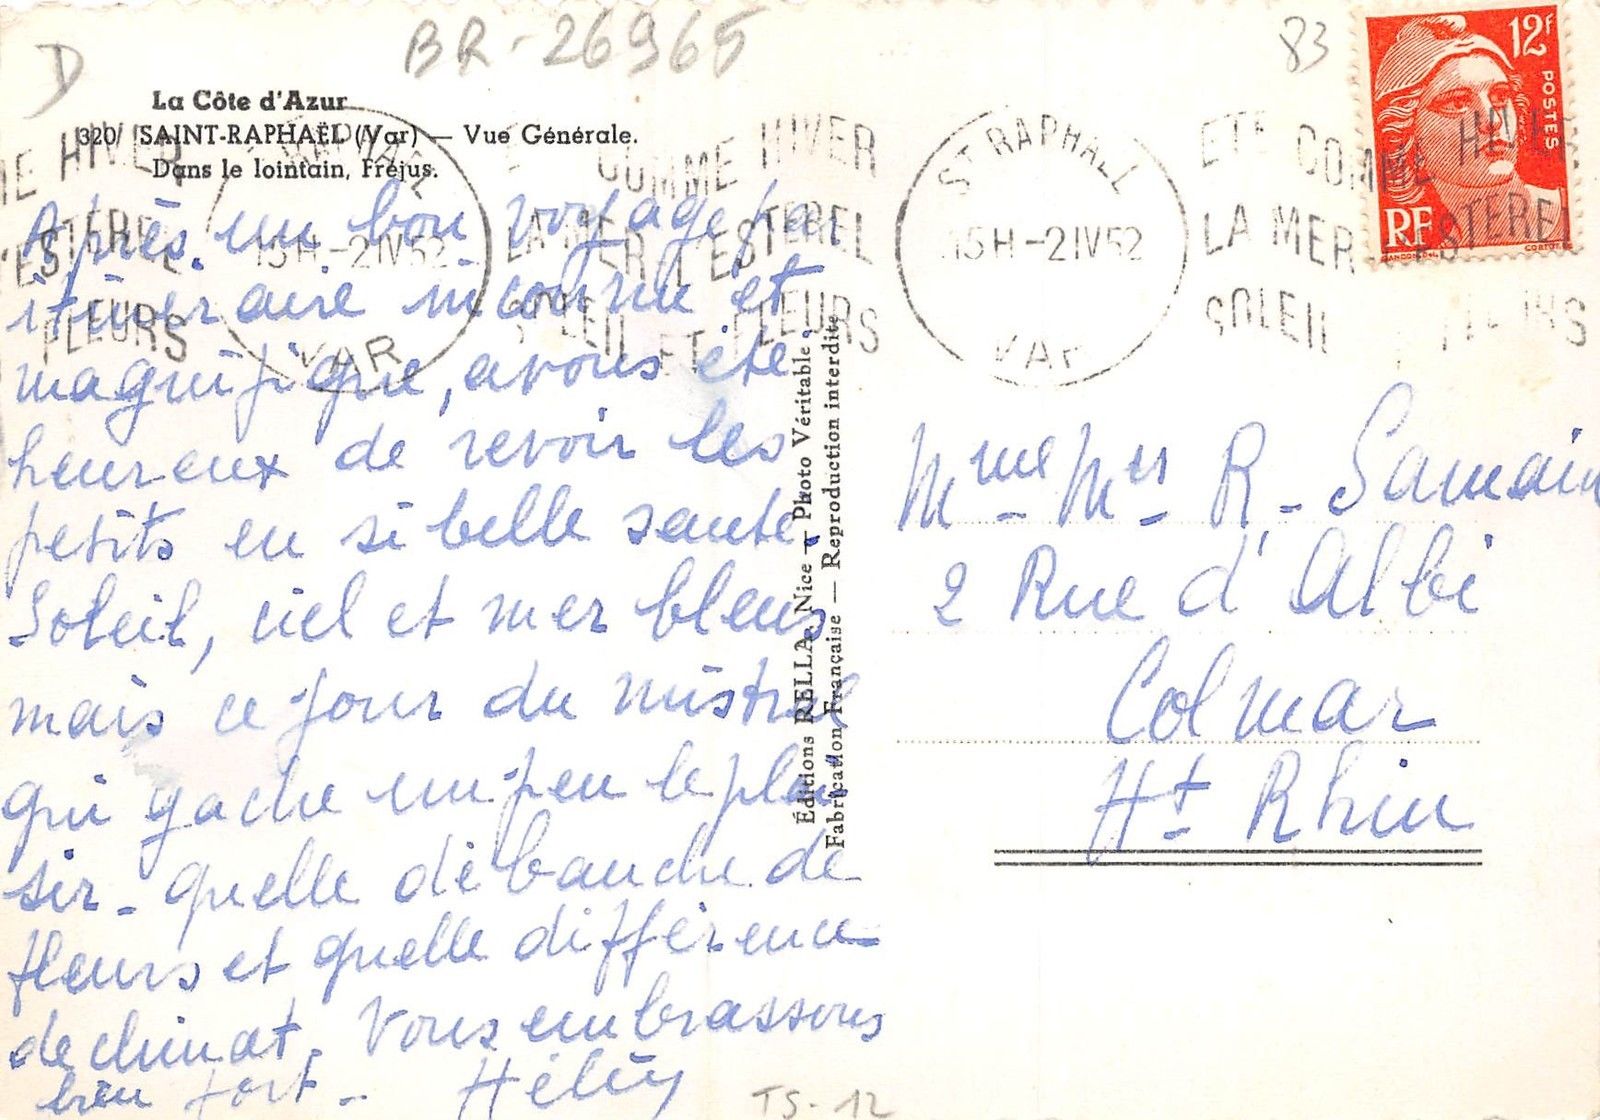 D
BR-26965
83
La Côte d'Azur
320/ SAINT-RAPHAËL (Var) — Vue Générale.
Dans le lointain, Fréjus.
12F
POSTES
RF
ST RAPHAEL
15H-2IV52
VAR
ETE COMME HIVER
LA MER L'ESTEREL
SOLEIL ET FLEURS
ST RAPHAEL
15H-2IV52
VAR
ETE COMME HIVER
LA MER L'ESTEREL
SOLEIL ET FLEURS
Après un bon voyage par
itineraire inconnu et
magnifique, avons été
heureux de revoir les
petits en si belle santé.
Soleil, ciel et mer bleus
mais ce jour du mistral
qui gache un peu le plai
sir - quelle débauche de
fleurs et quelle différence
de climat. Vous embrassons
bien fort -
Éditions RELLA, Nice — Photo Véritable
Fabrication Française — Reproduction interdite
Mme R. Samain
2 Rue d'Albi
Colmar
Ht Rhin
TS-12